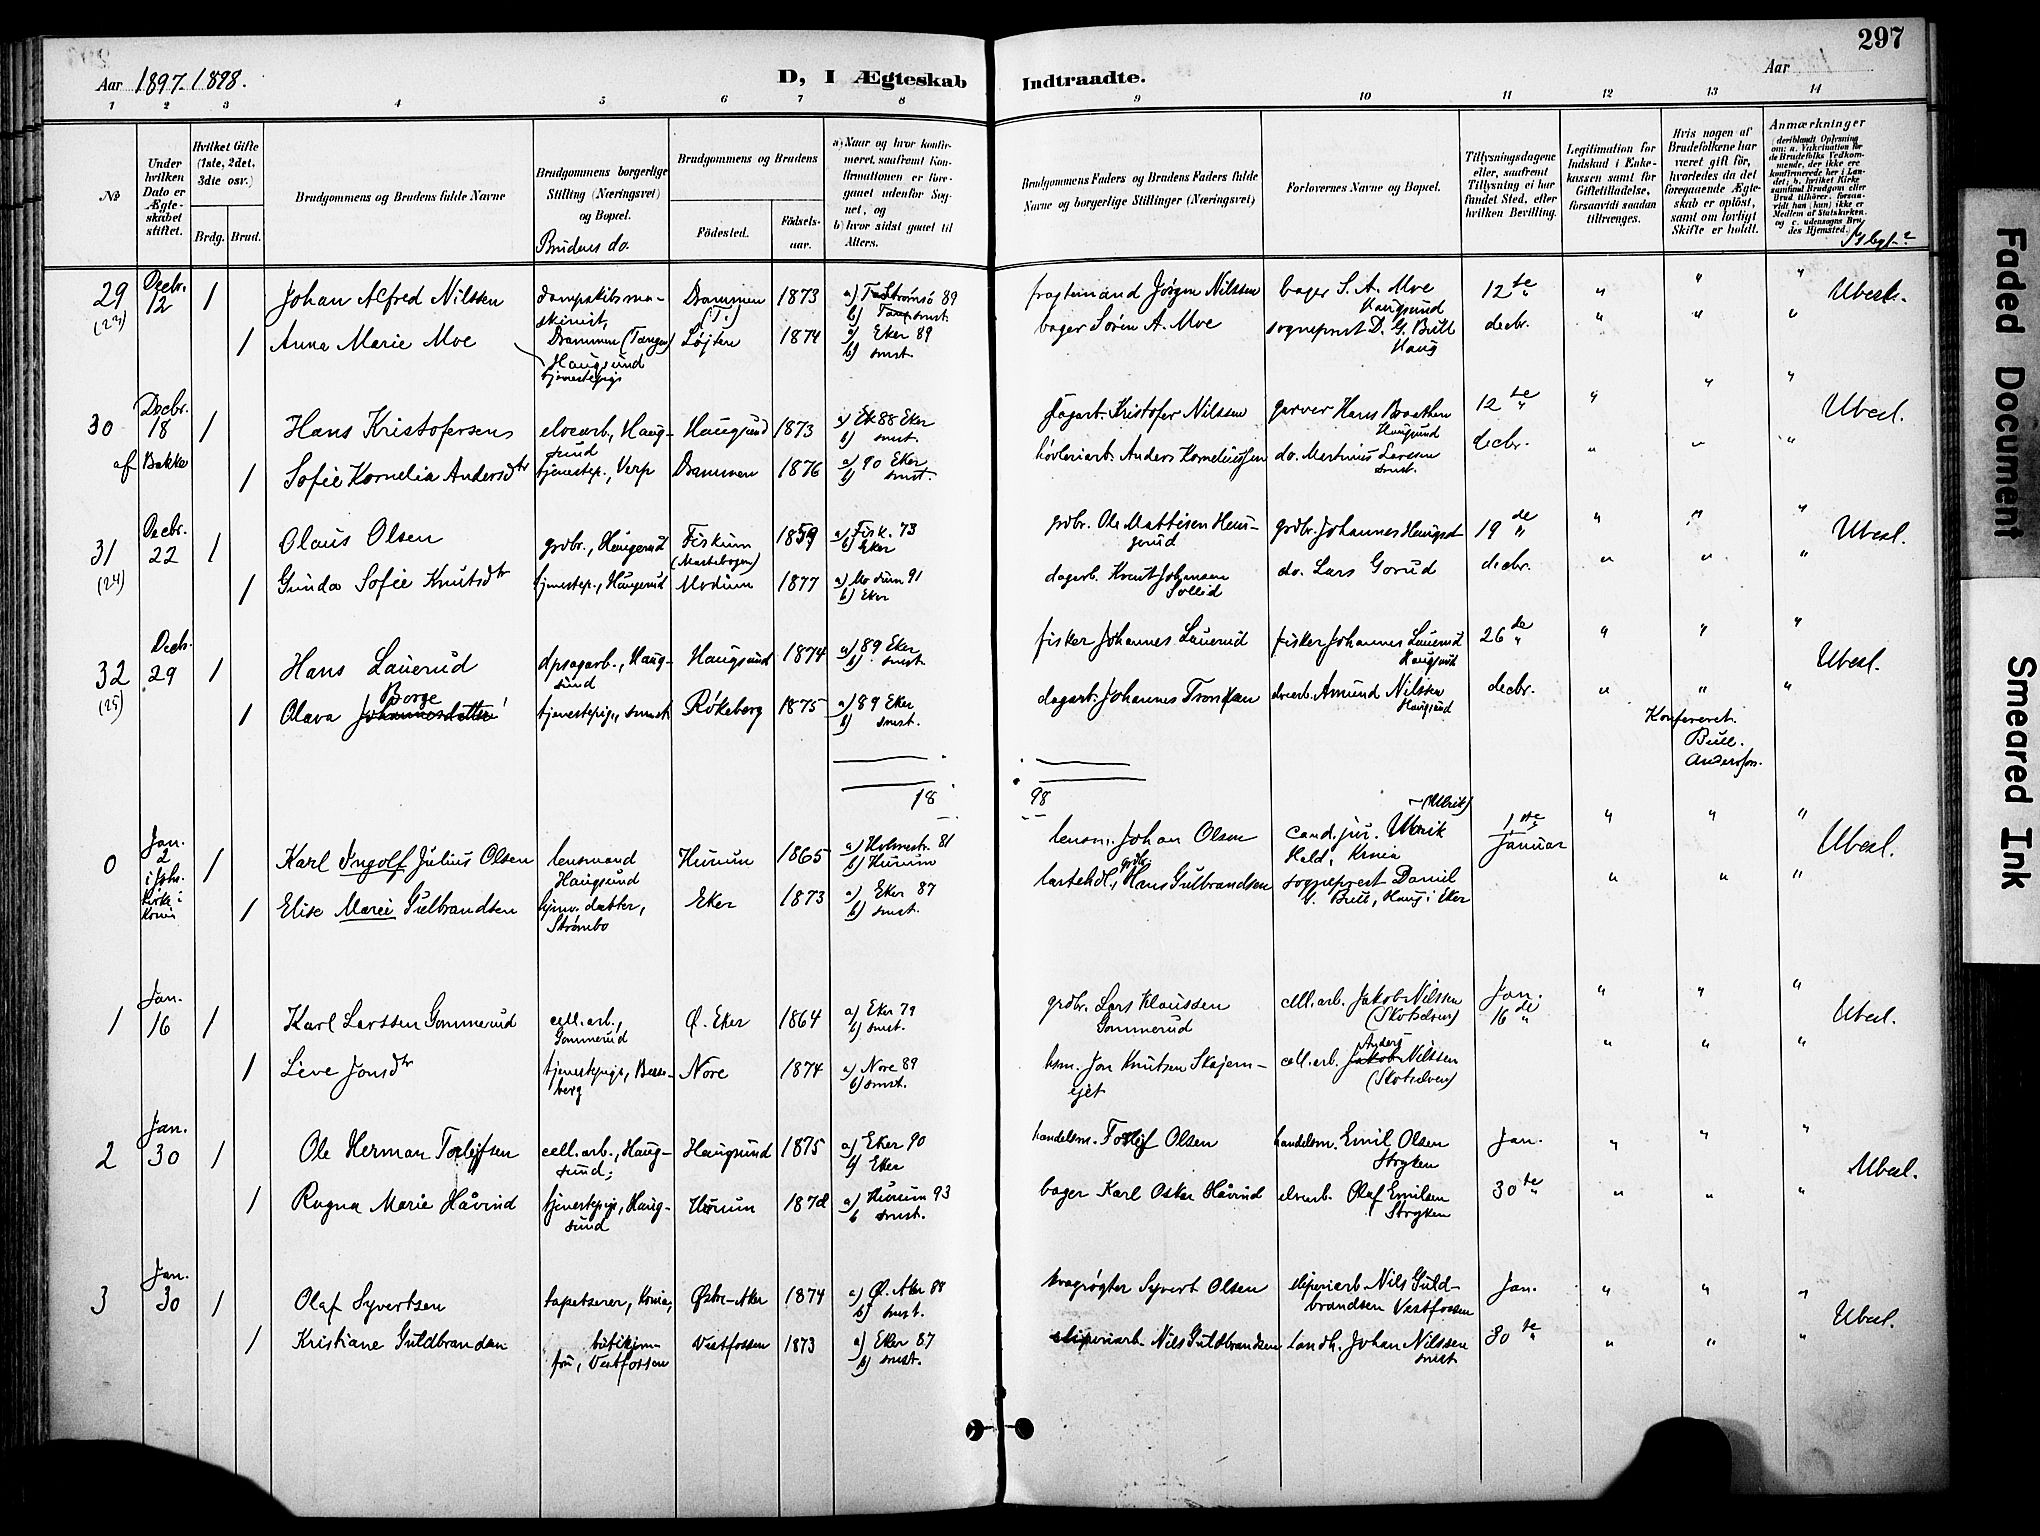 297
Aar 1897-1898.
D, I Ægteskab Indtraadte.
Aar
1 2 3 4 5 6 7 8 9 10 11 12 13 14
No
Under hvilken Dato er Ægteskabet stiftet.
Hvilket Gifte (1ste, 2det, 3die osv.)
Brdg. Brud.
Brudgommens og Brudens fulde Navne
Brudgommens borgerlige Stilling (Næringsvei) og Bopæl.
Brudens do.
Brudgommens og Brudens
Fødested.
Fødselsaar.
a) Naar og hvor konfirmeret, saafremt Konfirmationen er foregaaet udenfor Sognet, og
b) hvor sidst gaaet til Alters.
Brudgommens Faders og Brudens Faders fulde Navne og borgerlige Stillinger (Næringsvei)
Forlovernes Navne og Bopæl.
Tillysningsdagene eller, saafremt Tillysning ei har fundet Sted, efter hvilken Bevilling.
Legitimation for Indskud i Enkekassen samt for Giftetilladelse, forsaavidt saadan tiltrænges.
Hvis nogen af Brudefolkene har været gift før, hvorledes da det foregaaende Ægteskab er opløst, samt om lovligt Skifte er holdt.
Anmærkninger (deriblandt Oplysning om: a. Vakcination for de Brudefolks Vedkommende, der ikke ere konfirmerede her i Landet; b. hvilket Kirke samfund Brudgom eller Brud tilhører, forsaavidt han (hun) ikke er Medlem af Statskirken, og c. udensogns Brudes Hjemsted.)
29 Decbr. 12 1 Johan Alfred Nilssen dampskibsmaskinist, Drammen (Tangen) Drammen (T.) 1873 a) Strømsø 89 fragtemand Jørgen Nilssen bager S. A. Moe Haugsund 12te " " " " Ubesl.
(23) b) smst.
1 Anna Marie Moe Haugsund tjenestepige Løjten 1874 a) Eker 89 b) smst. bager Søren A. Moe sogneprest D. G. Bull Haug decbr. " " "
30 Decbr. 18 1 Hans Kristofersen elvearb., Haugsund Haugsund 1873 a) 88 Eker b) smst. dagarb. Kristofer Nilssen garver Hans Braathen Haugsund 12te " " " " Ubesl.
af Bakke 1 Sofie Kornelia Andersdtr tjenestep., Verp Drammen 1876 a) 90 Eker b) smst. høvleriarb. Anders Korneliussen do. Martinius Larsen smst. decbr. " " "
31 Decbr. 22 1 Olaus Olsen grdbr., Haugerud Fiskum 1859 a) Fisk. 73 b) Eker grdbr. Ole Mattisen Haugerud grdbr. Johannes Haugerud 19de " " " " Ubesl.
(24) 1 Gunda Sofie Knutsdtr tjenestep., Haugerud Modum 1877 a) Modum 91 b) Eker dagarb. Knut Johansen Sollid do. Lars Gorud decbr. " " "
32 Decb. 29 1 Hans Lauerud dpsagarb., Haugsund Haugsund 1874 a) 89 Eker b) smst. fisker Johannes Lauerud fisker Johannes Lauerud Haugsund 26de " " " " Ubesl.
(25) 1 Olava Borge Johannesdatter tjenestepige, smst. Røkeberg 1875 a) 89 Eker b) smst. dagarb. Johannes elvearb. Amund Nilssen Haugsund decbr. " " "
Konfereret.
Bull.
Anderssen.
18 98
0 Jan. 2 i Joh. kirke i Krnia 1 Karl Ingolf Julius Olsen lensmand Haugsund Hurum 1865 a) Holmestr. 81 b) Hurum lensm. Johan Olsen cand. jur. Ulrik (Ulrik) Hald, Krnia 1ste Januar " " " Ubesl.
1 Elise Marei Gulbrandsen hjemv. datter, Strømbo Eker 1873 a) Eker 87 b) smst. lastehdl., grdbr. Hans Gulbrandsen sogneprest Daniel G. Bull, Haug i Eker " " "
1 Jan. 16 1 Karl Larssen Gommerud cell. arb., Gommerud Ø. Eker 1864 a) Eker 79 b) smst. grdbr. Lars Klaussen Gommerud cell. arb. Jakob Nilssen (Skotselven) Jan. 16de " " " " Ubesl.
1 Live Jonsdtr tjenestepige, Nore 1874 a) Nore 89 b) smst. hsm. Jon Knutsen Skjerneiet cell. arb. Anders Jakob Nilssen (Skotselven) " " "
2 Jan. 30 1 Ole Herman Torleifsen cell. arb., Haugsund; Haugsund 1875 a) Eker 90 b) Eker handelsm. Torleif Olsen handelsm. Emil Olsen Stryken Jan. " " " Ubesl.
1 Ragna Marie Håvind tjenestepige, Haugsund Hurum 1872 a) Hurum 93 b) smst. bager Karl Oskar Håvind elvearb. Olaf Emilsen Stryken 30te " " " "
3 Jan. 30 1 Olaf Syvertsen tapetserer, Krnia, Østre-Aker 1874 a) Ø. Aker 88 b) smst. kvægrøgter Syvert Olsen sliperiarb. Nils Guldbrandsen Vestfossen Jan. " " " Ubesl.
1 Kristiane Guldbrandsen butikjomfru, Vestfossen Vestfossen 1873 a) Eker 87 b) smst. sliperiarb. Nils Guldbrandsen landh. Johan Nilssen smst 30te " " " "
Faded Document
Smeared Ink